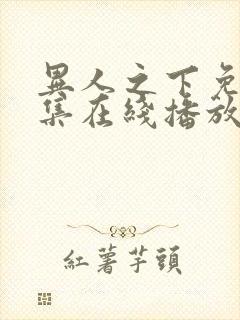 異人之下免
集在綫播放
紅薯芋頭